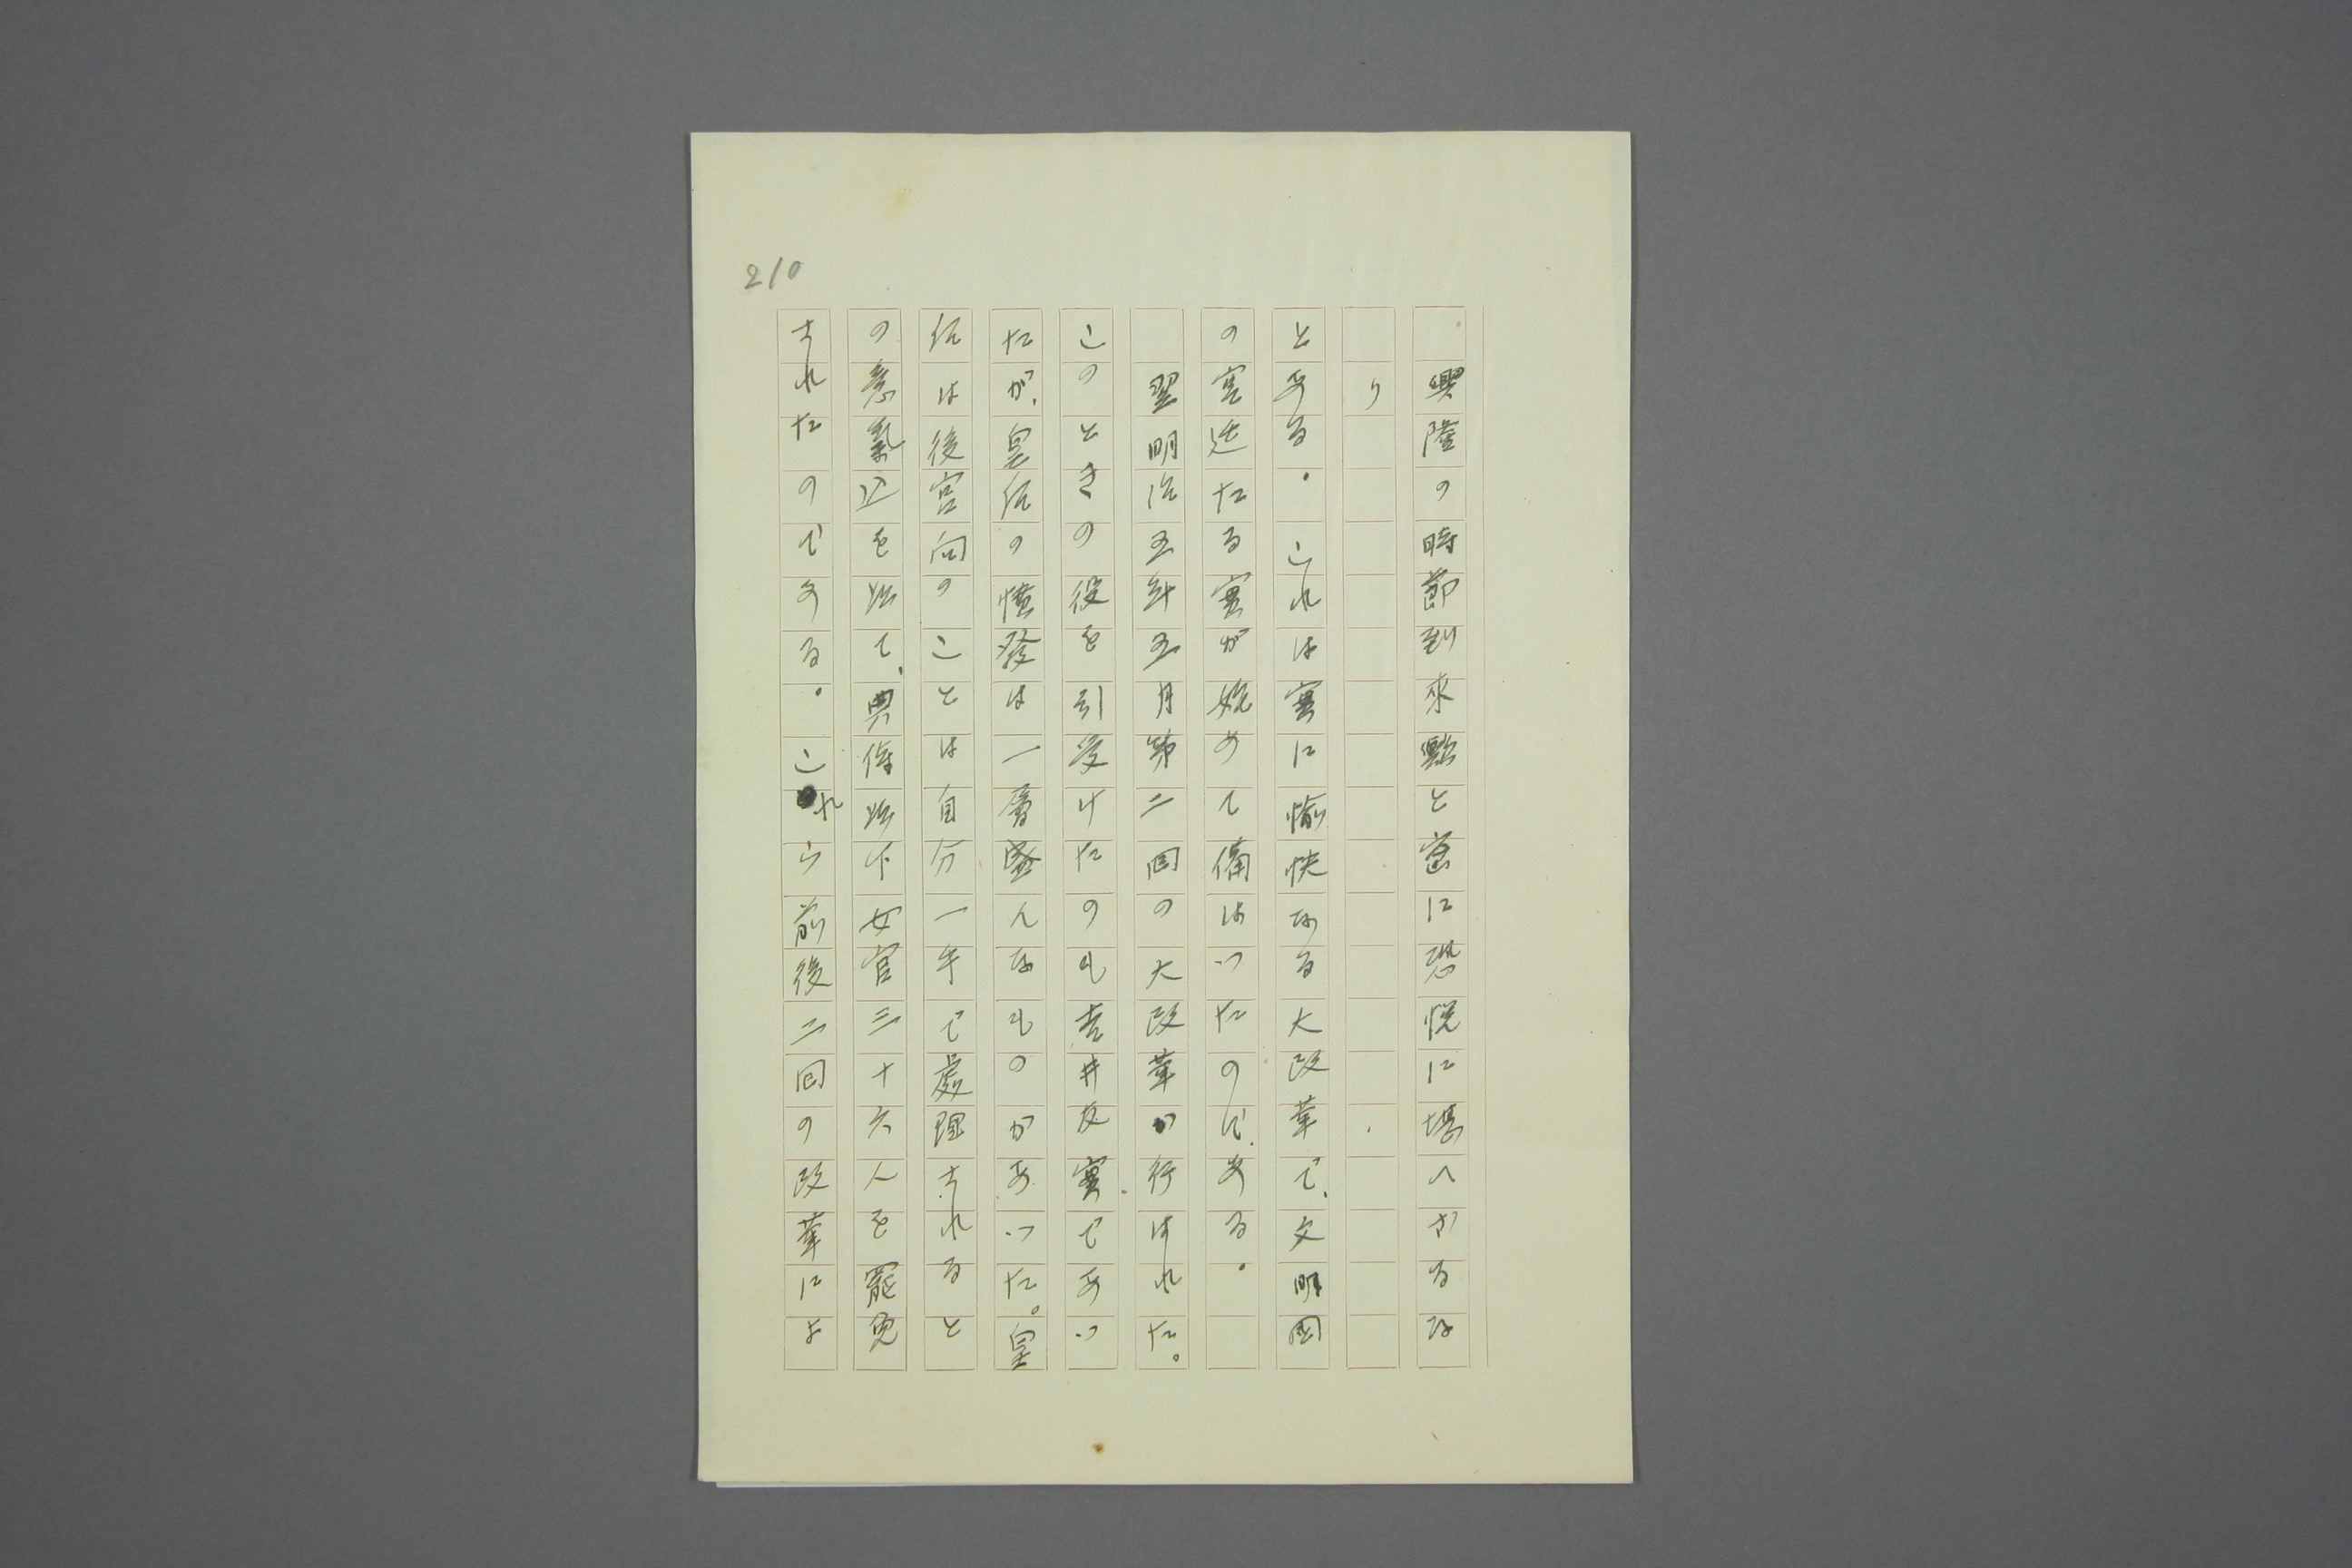 210
興隆の時節到來歟と密に恐悦に堪へさるな
り
とある。これは實に愉快なる大改革で、文明国
の宮廷たる實が始めて備はつたのである。
翌明治五年五月第二囘の大改革が行はれた。
このときの役を引受けたのも吉井友實であつ
たが、皇后の憤發は一層盛んなものがあつた。皇
后は後宮向のことは自分一手で處理されると
の意氣込を以て、典侍以下女官三十六人を罷免
されたのである。これら前後二回の改革によ